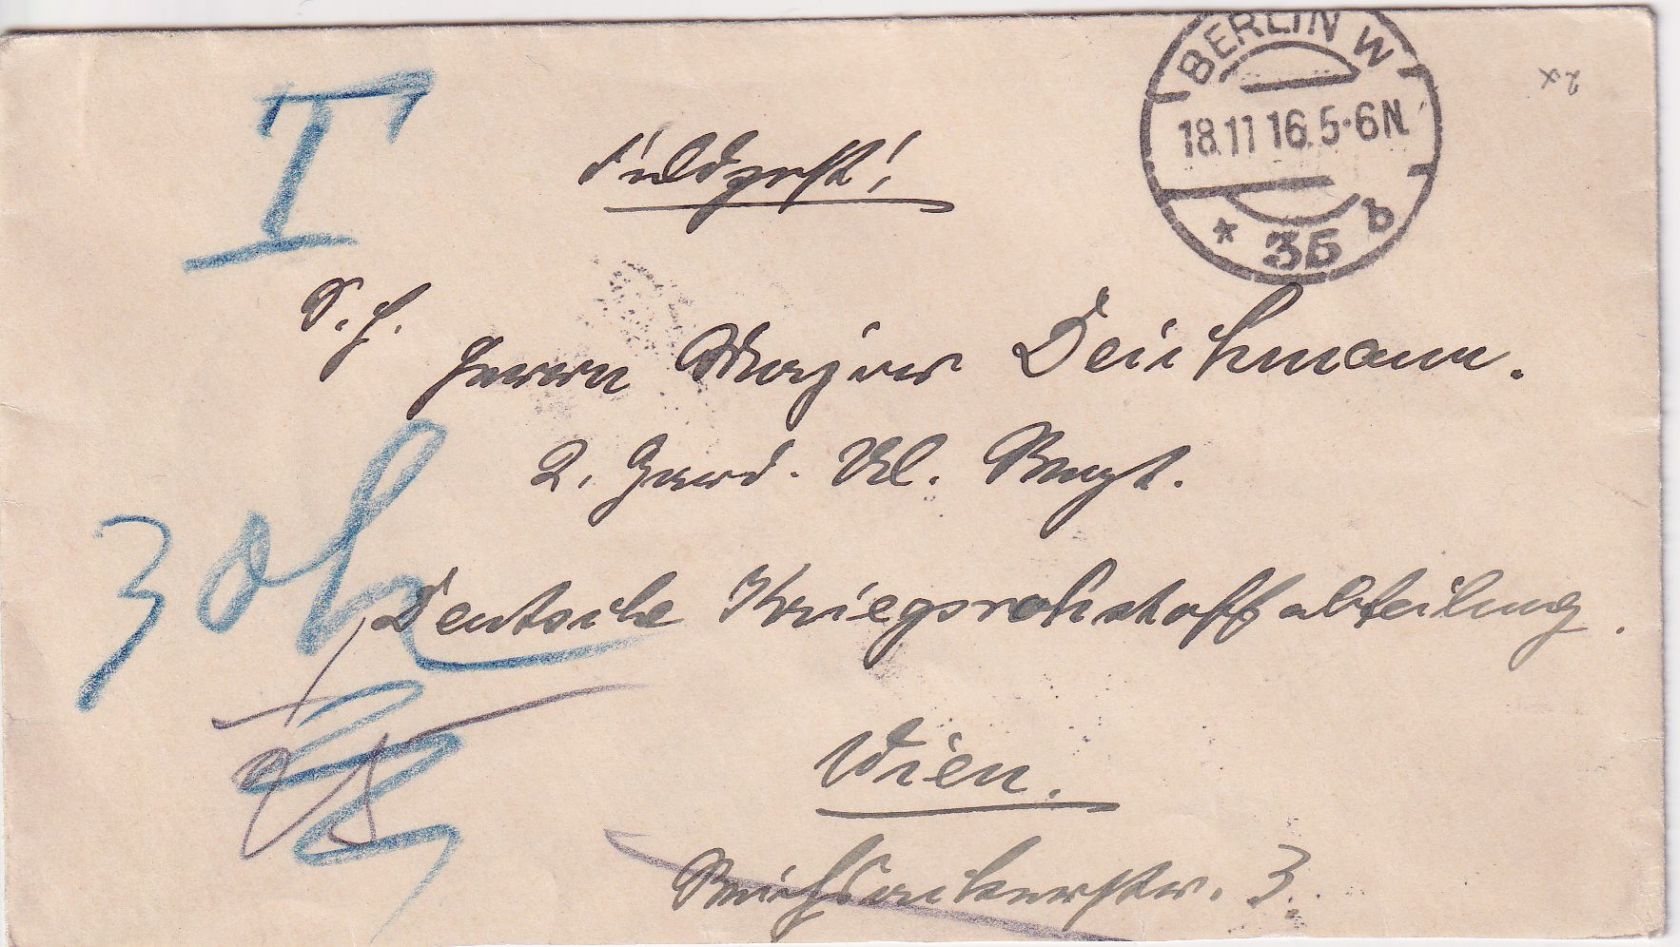 BERLIN W
18.11 16.5-6N.
* 35 b
T
Feldpost!
S. H.
Herrn Major Deichmann.
2. Gard. Ul. Regt.
30 h
Deutsche Kriegsrohstoffabteilung.
Wien.
3.